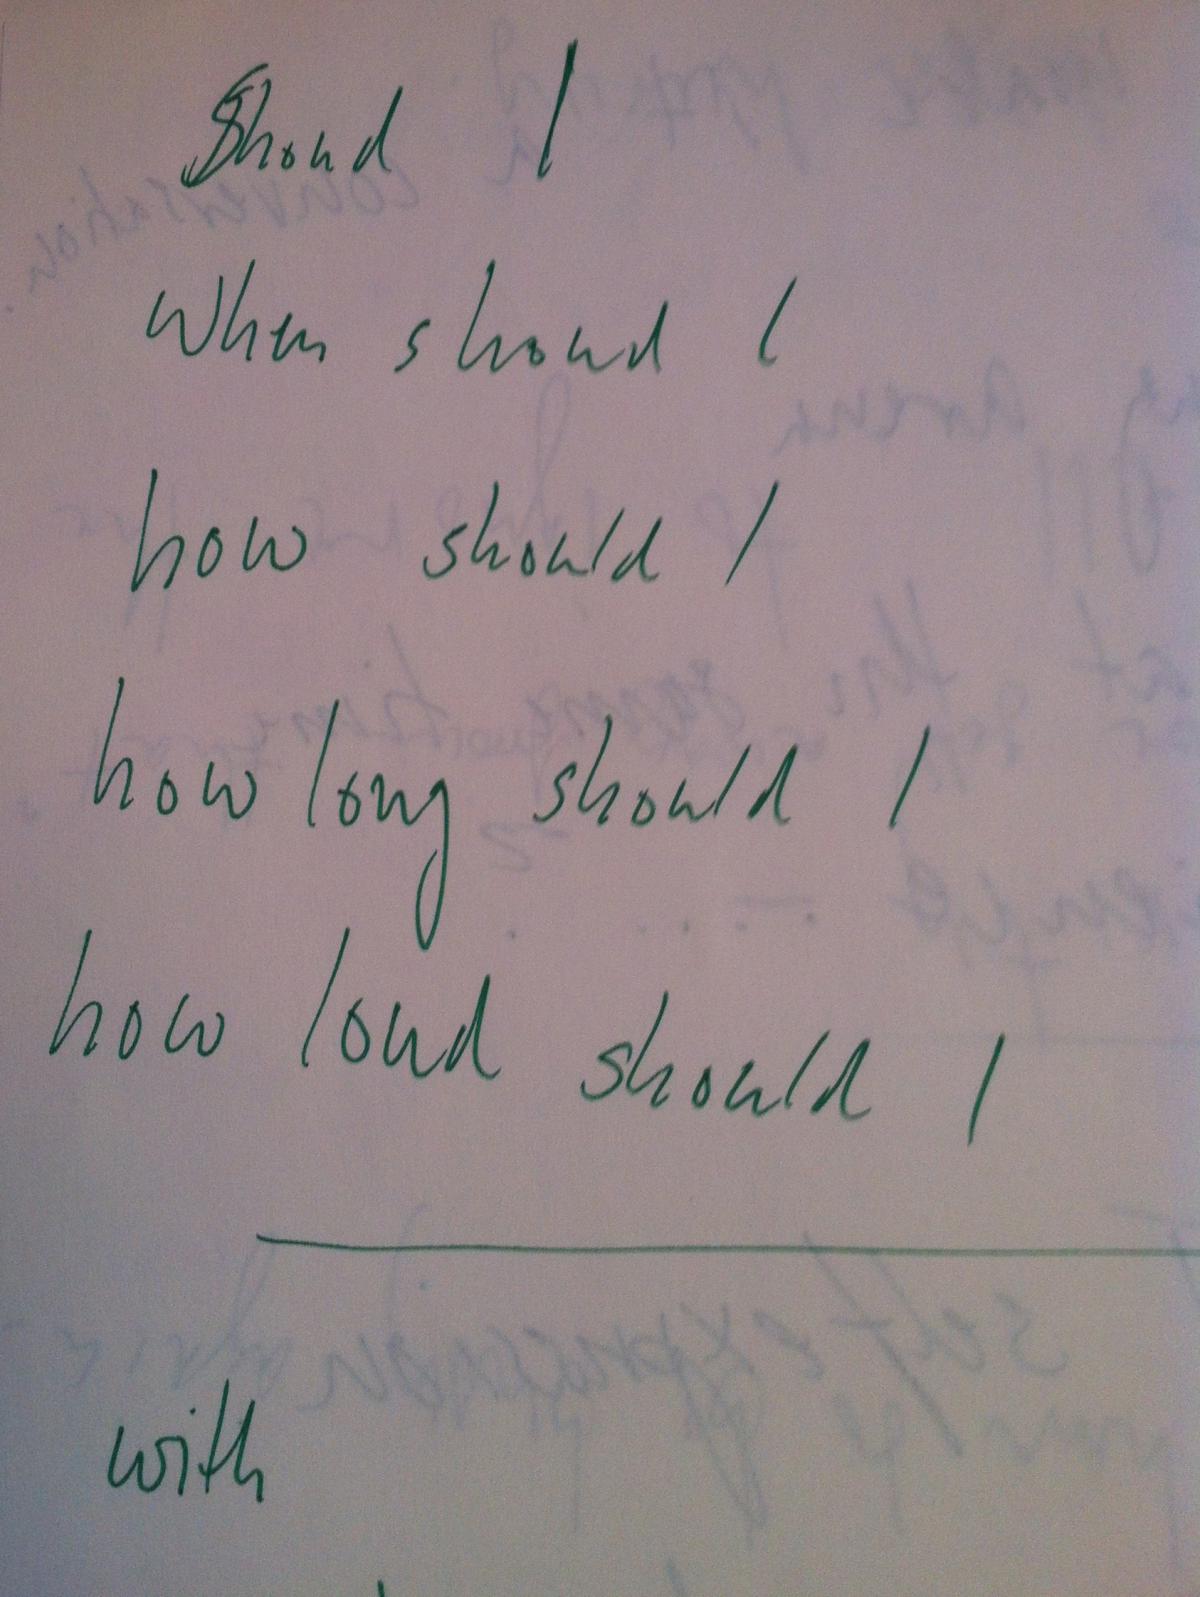 Shoud I
When shoud I
how should I
how long should I
how loud should I
with